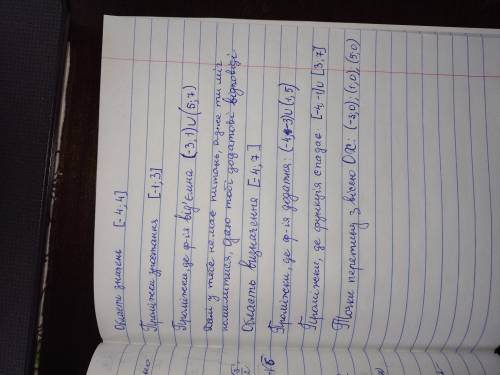 Область значень [-4; 4]
Проміжки зростання [-1; 3]
Проміжки, де ф-ія від'ємна (-3, 1) ∪ (5; 7)
у тебе немає питань, адже ти міг
помилитися, даю тобі додаткові відповіді
Область визначення [-4; 7]
Проміжки, де ф-ія додатня: (-4; -3) ∪ (1, 5)
Проміжки, де функція спадає [-4; -1] ∪ [3, 7]
Точки перетину з вісью OX: (-3; 0); (1; 0); (5; 0)